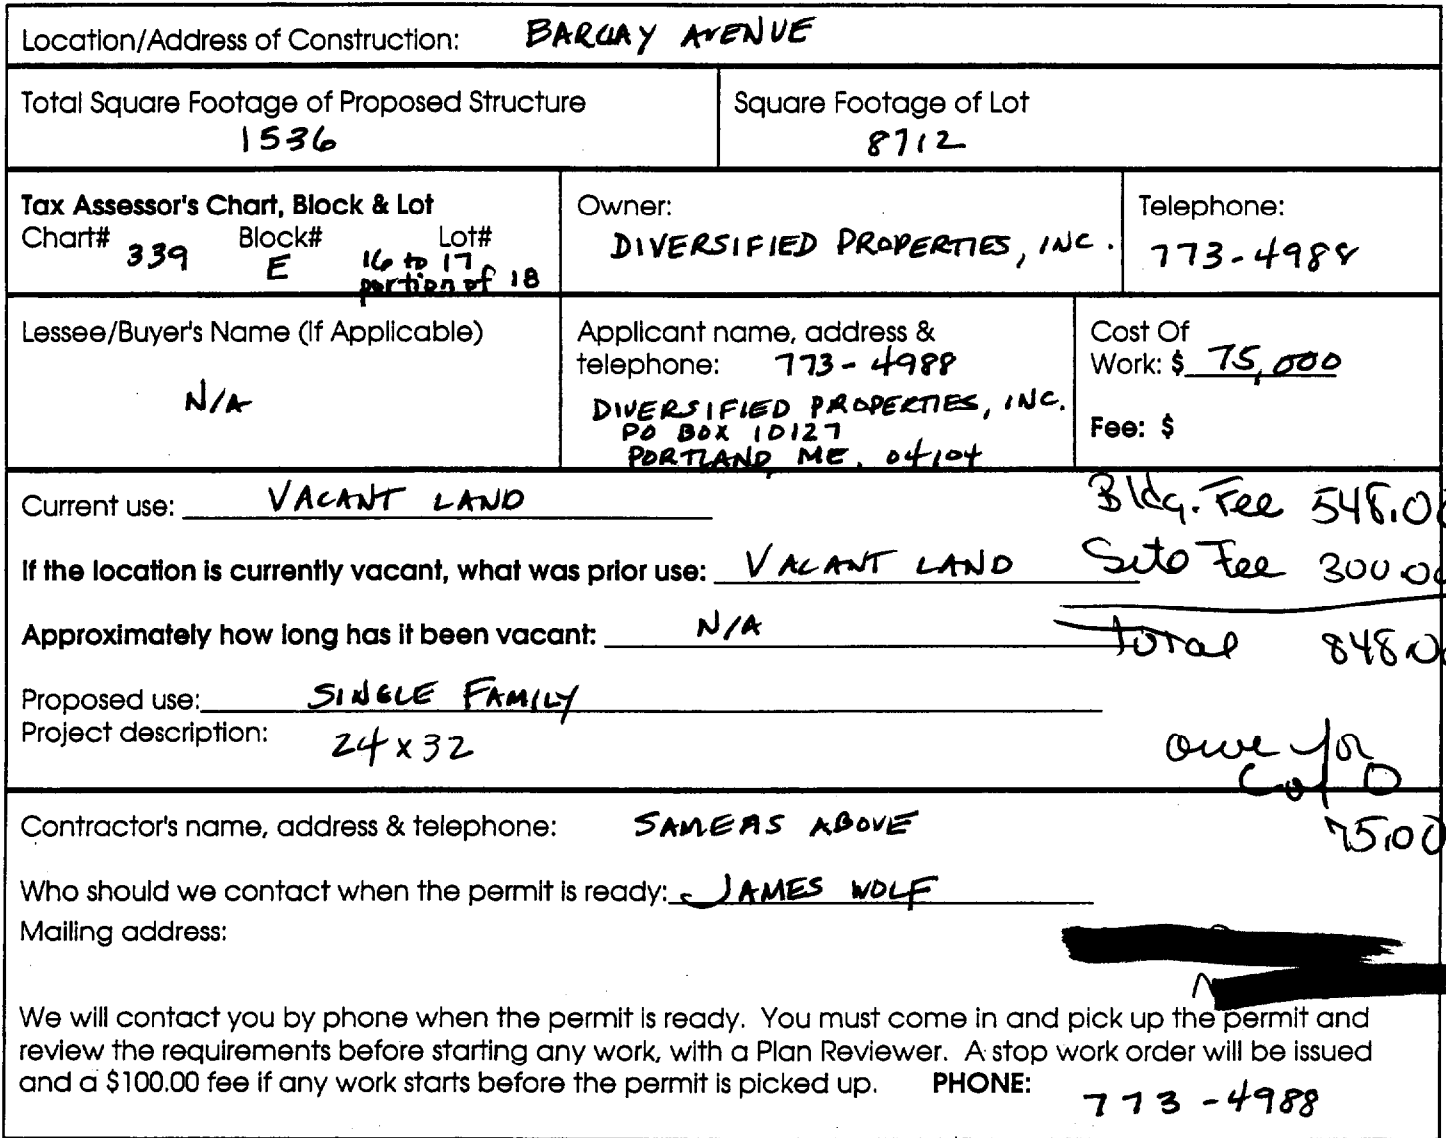 Location/Address of Construction: BARCLAY AVENUE
Total Square Footage of Proposed Structure
1536
Square Footage of Lot
8712
Tax Assessor's Chart, Block & Lot
Chart# 339 Block# E Lot# 16 to 17
portion of 18
Owner:
DIVERSIFIED PROPERTIES, INC.
Telephone:
773-4988
Lessee/Buyer's Name (If Applicable)
N/A
Applicant name, address &
telephone: 773-4988
DIVERSIFIED PROPERTIES, INC.
PO BOX 10127
PORTLAND, ME. 04104
Cost Of
Work: $ 75,000
Fee: $
Current use: VACANT LAND
Bldg. Fee 548.00
If the location is currently vacant, what was prior use: VACANT LAND
Site Fee 300.00
Approximately how long has it been vacant: N/A
Total 848.00
Proposed use: SINGLE FAMILY
Project description: 24 x 32
owe for
C of O
75.00
Contractor's name, address & telephone: SAME AS ABOVE
Who should we contact when the permit is ready: JAMES WOLF
Mailing address:
We will contact you by phone when the permit is ready. You must come in and pick up the permit and
review the requirements before starting any work, with a Plan Reviewer. A stop work order will be issued
and a $100.00 fee if any work starts before the permit is picked up. PHONE: 773-4988